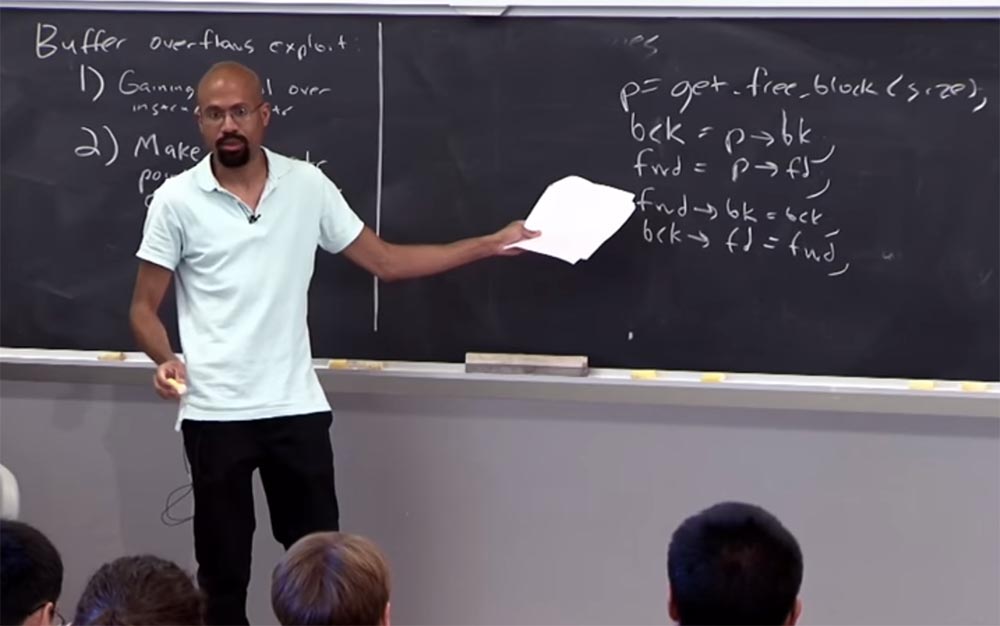 Buffer overflows exploit:
1) Gaining over
2) Make
p = get_free_block(size);
bck = p→bk;
fwd = p→fd;
fwd→bk = bck
bck→fd = fwd;